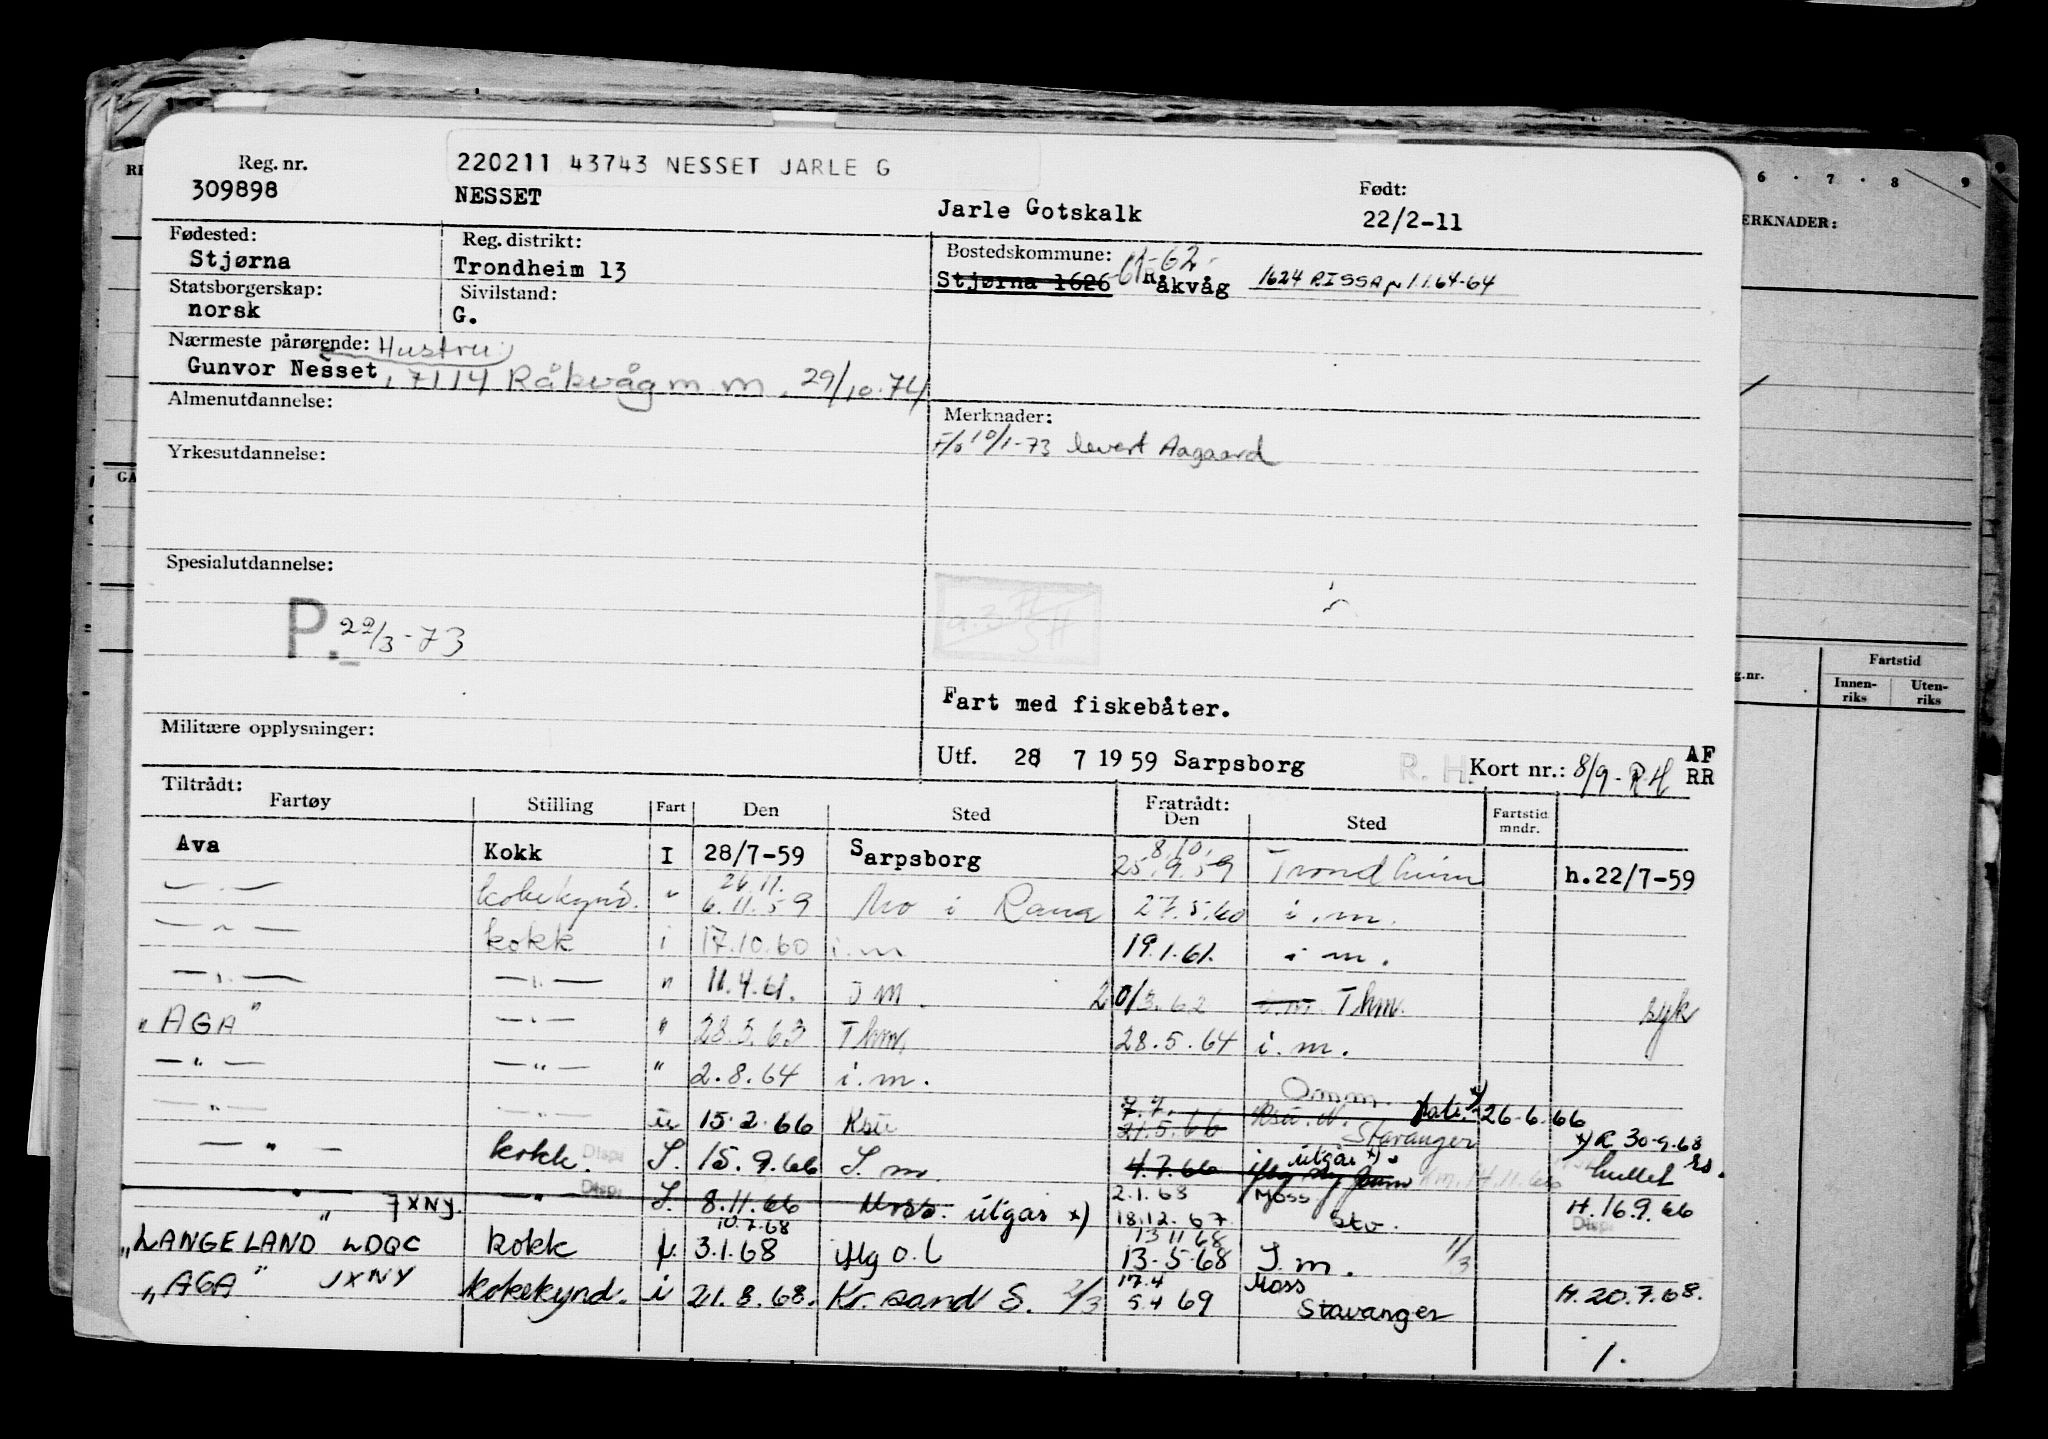 Reg. nr.
309898
220211 43743 NESSET JARLE G
NESSET
Jarle Gotskalk
Født:
22/2-11
Fødested:
Stjørna
Reg. distrikt:
Trondheim 13
Bostedskommune:
Stjørna 1626 -61-62- Råkvåg 1624 RISSA 1.1.64-64
Statsborgerskap:
norsk
Sivilstand:
G.
Nærmeste pårørende: Hustru
Gunvor Nesset, 7114 Råkvåg m.m. 29/10-74
Almenutdannelse:
Merknader:
10/1-73 levert Aagaard
Yrkesutdannelse:
Spesialutdannelse:
P. 22/3-73
Fart med fiskebåter.
Militære opplysninger:
Utf. 28 7 1959 Sarpsborg
R. H. Kort nr.: 8/9-RH AF RR
Tiltrådt:
Fartøy Stilling Fart Den Sted Fratrådt: Den Sted Fartstid mndr.
Ava Kokk I 28/7-59 Sarpsborg 8.10. 25.9.59 Trondheim h.22/7-59
—"— kokekynd. " 26.11. 6.11.59 Mo i Rana 27.5.60 i.m.
—"— kokk i 17.10.60 i.m 19.1.61. i m.
—"— —"— " 11.4.61. I m. 20/3.62 i.m. Thm. syk
"AGA" —"— " 28.5.63 Thm. 28.5.64 i.m.
—"— —"— " 2.8.64 i.m. Omm.
—"— —"— u 15.2.66 Ksu 7.7. 21.5.66 Ksu. N. Stavanger 26-6.66
—"— kokk. Disp: I. 15.9.66 I. m. 4.7.66 utgår x) x) R 30-9-68 hullet
—"— JXNY. —"— Disp: I. 8.11.66 Moss. utgår x) 2.1.68 Moss 18.12.67 Stv. H.16.9.66 Disp:
"LANGELAND" LDQC kokk u. 10.7.68 3.1.68 Hg o. l 13 11 68 13-5-68 I m. 1/3
"AGA" JXNY kokekynd. i 21.8.68. Kr.sand S. 2/3 17.4 5.4 69 Moss Stavanger H.20.7.68.
1.
6 . 7 . 8 9
MERKNADER:
Fartstid
Innen-riks Uten-riks